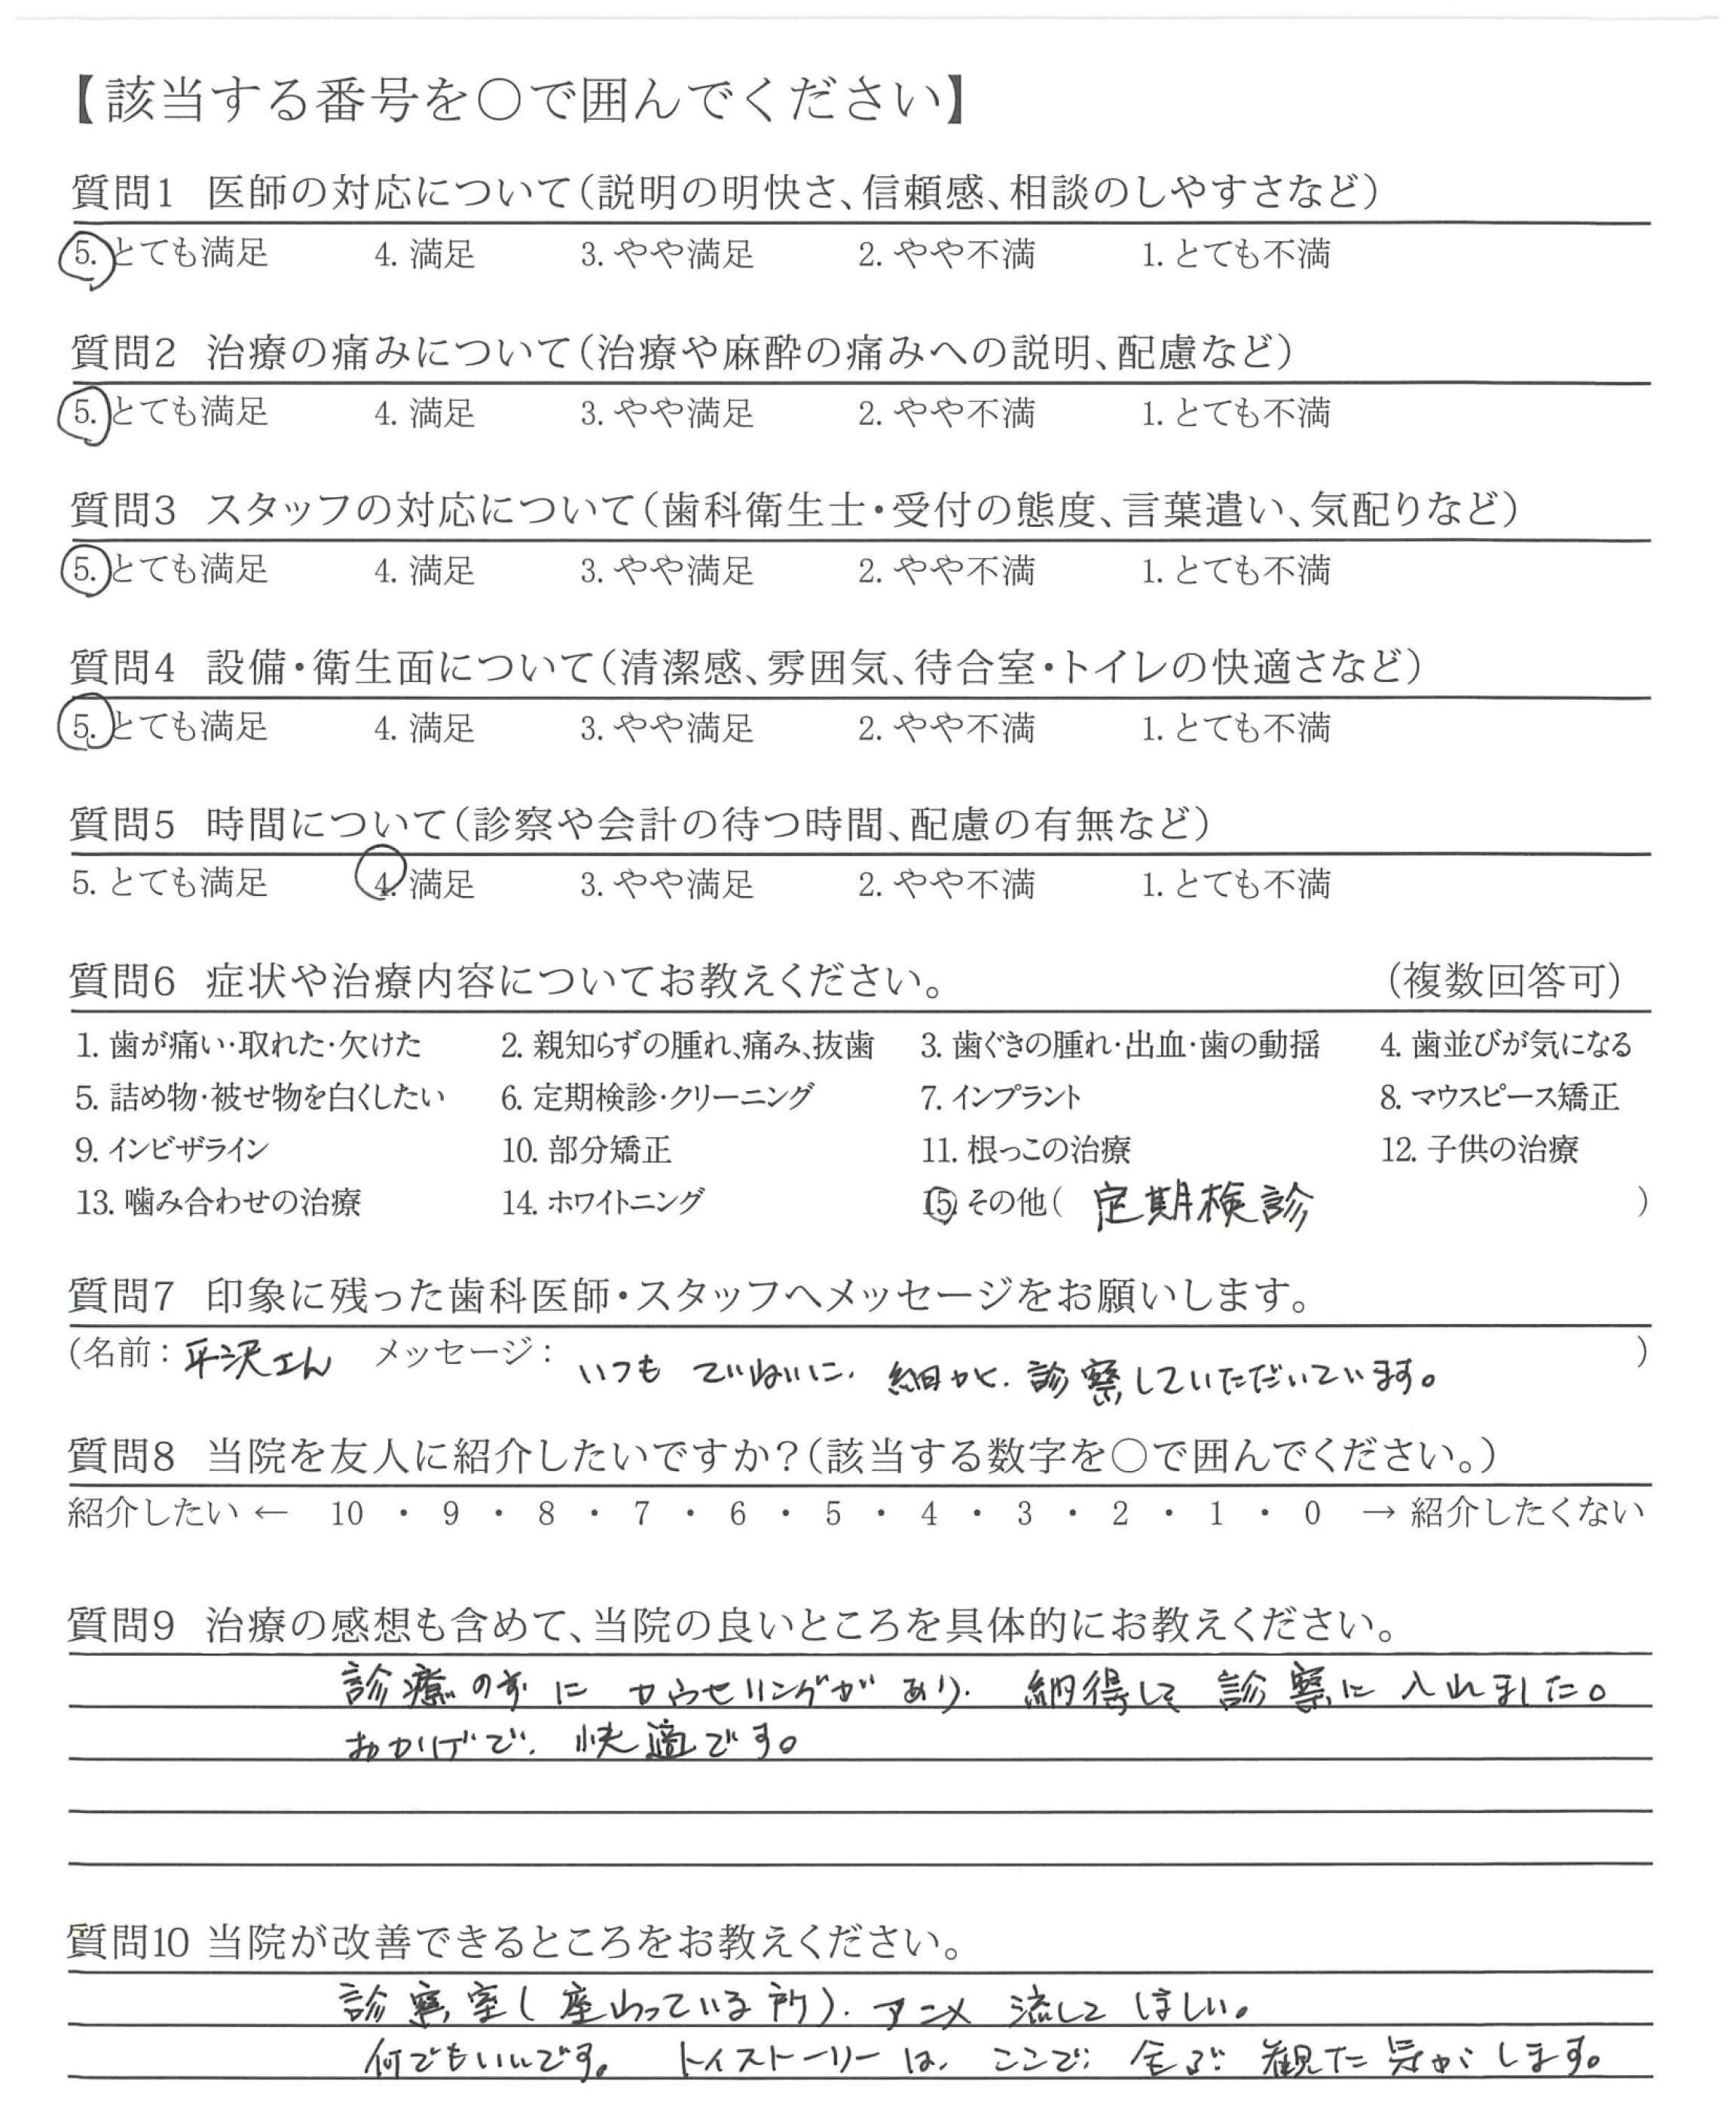 【該当する番号を○で囲んでください】
質問1 医師の対応について（説明の明快さ、信頼感、相談のしやすさなど）
5. とても満足 4. 満足 3. やや満足 2. やや不満 1. とても不満
質問2 治療の痛みについて（治療や麻酔の痛みへの説明、配慮など）
5. とても満足 4. 満足 3. やや満足 2. やや不満 1. とても不満
質問3 スタッフの対応について（歯科衛生士・受付の態度、言葉遣い、気配りなど）
5. とても満足 4. 満足 3. やや満足 2. やや不満 1. とても不満
質問4 設備・衛生面について（清潔感、雰囲気、待合室・トイレの快適さなど）
5. とても満足 4. 満足 3. やや満足 2. やや不満 1. とても不満
質問5 時間について（診察や会計の待つ時間、配慮の有無など）
5. とても満足 4. 満足 3. やや満足 2. やや不満 1. とても不満
質問6 症状や治療内容についてお教えください。 （複数回答可）
1. 歯が痛い・取れた・欠けた 2. 親知らずの腫れ、痛み、抜歯 3. 歯ぐきの腫れ・出血・歯の動揺 4. 歯並びが気になる
5. 詰め物・被せ物を白くしたい 6. 定期検診・クリーニング 7. インプラント 8. マウスピース矯正
9. インビザライン 10. 部分矯正 11. 根っこの治療 12. 子供の治療
13. 噛み合わせの治療 14. ホワイトニング 15. その他（ 定期検診 ）
質問7 印象に残った歯科医師・スタッフへメッセージをお願いします。
（名前： 平沢さん メッセージ： いつも ていねいに、細かく、診察していただいています。 ）
質問8 当院を友人に紹介したいですか？（該当する数字を○で囲んでください。）
紹介したい ← 10 ・ 9 ・ 8 ・ 7 ・ 6 ・ 5 ・ 4 ・ 3 ・ 2 ・ 1 ・ 0 → 紹介したくない
質問9 治療の感想も含めて、当院の良いところを具体的にお教えください。
診療の前に カウセリングがあり、納得して 診察に 入れました。
おかげで、快適です。
質問10 当院が改善できるところをお教えください。
診察室（座わっている所）、アニメ 流して ほしい。
何でもいいです。 トイストーリーは、ここで、全部 観た気がします。